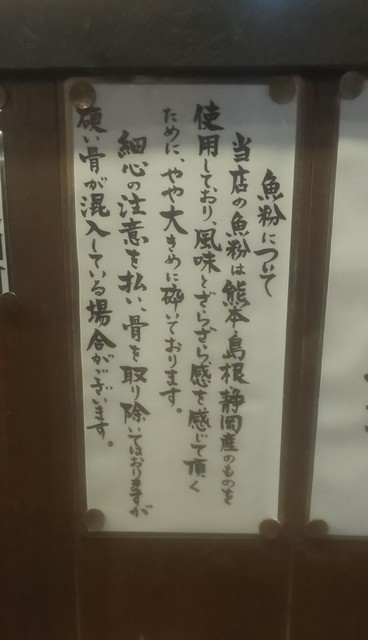 魚粉について
当店の魚粉は熊本、島根、静岡産のものを
使用しており、風味とざらざら感を感じて頂く
ために、やや大きめに砕いております。
細心の注意を払い、骨を取り除いてはおりますが
硬い骨が混入している場合がございます。